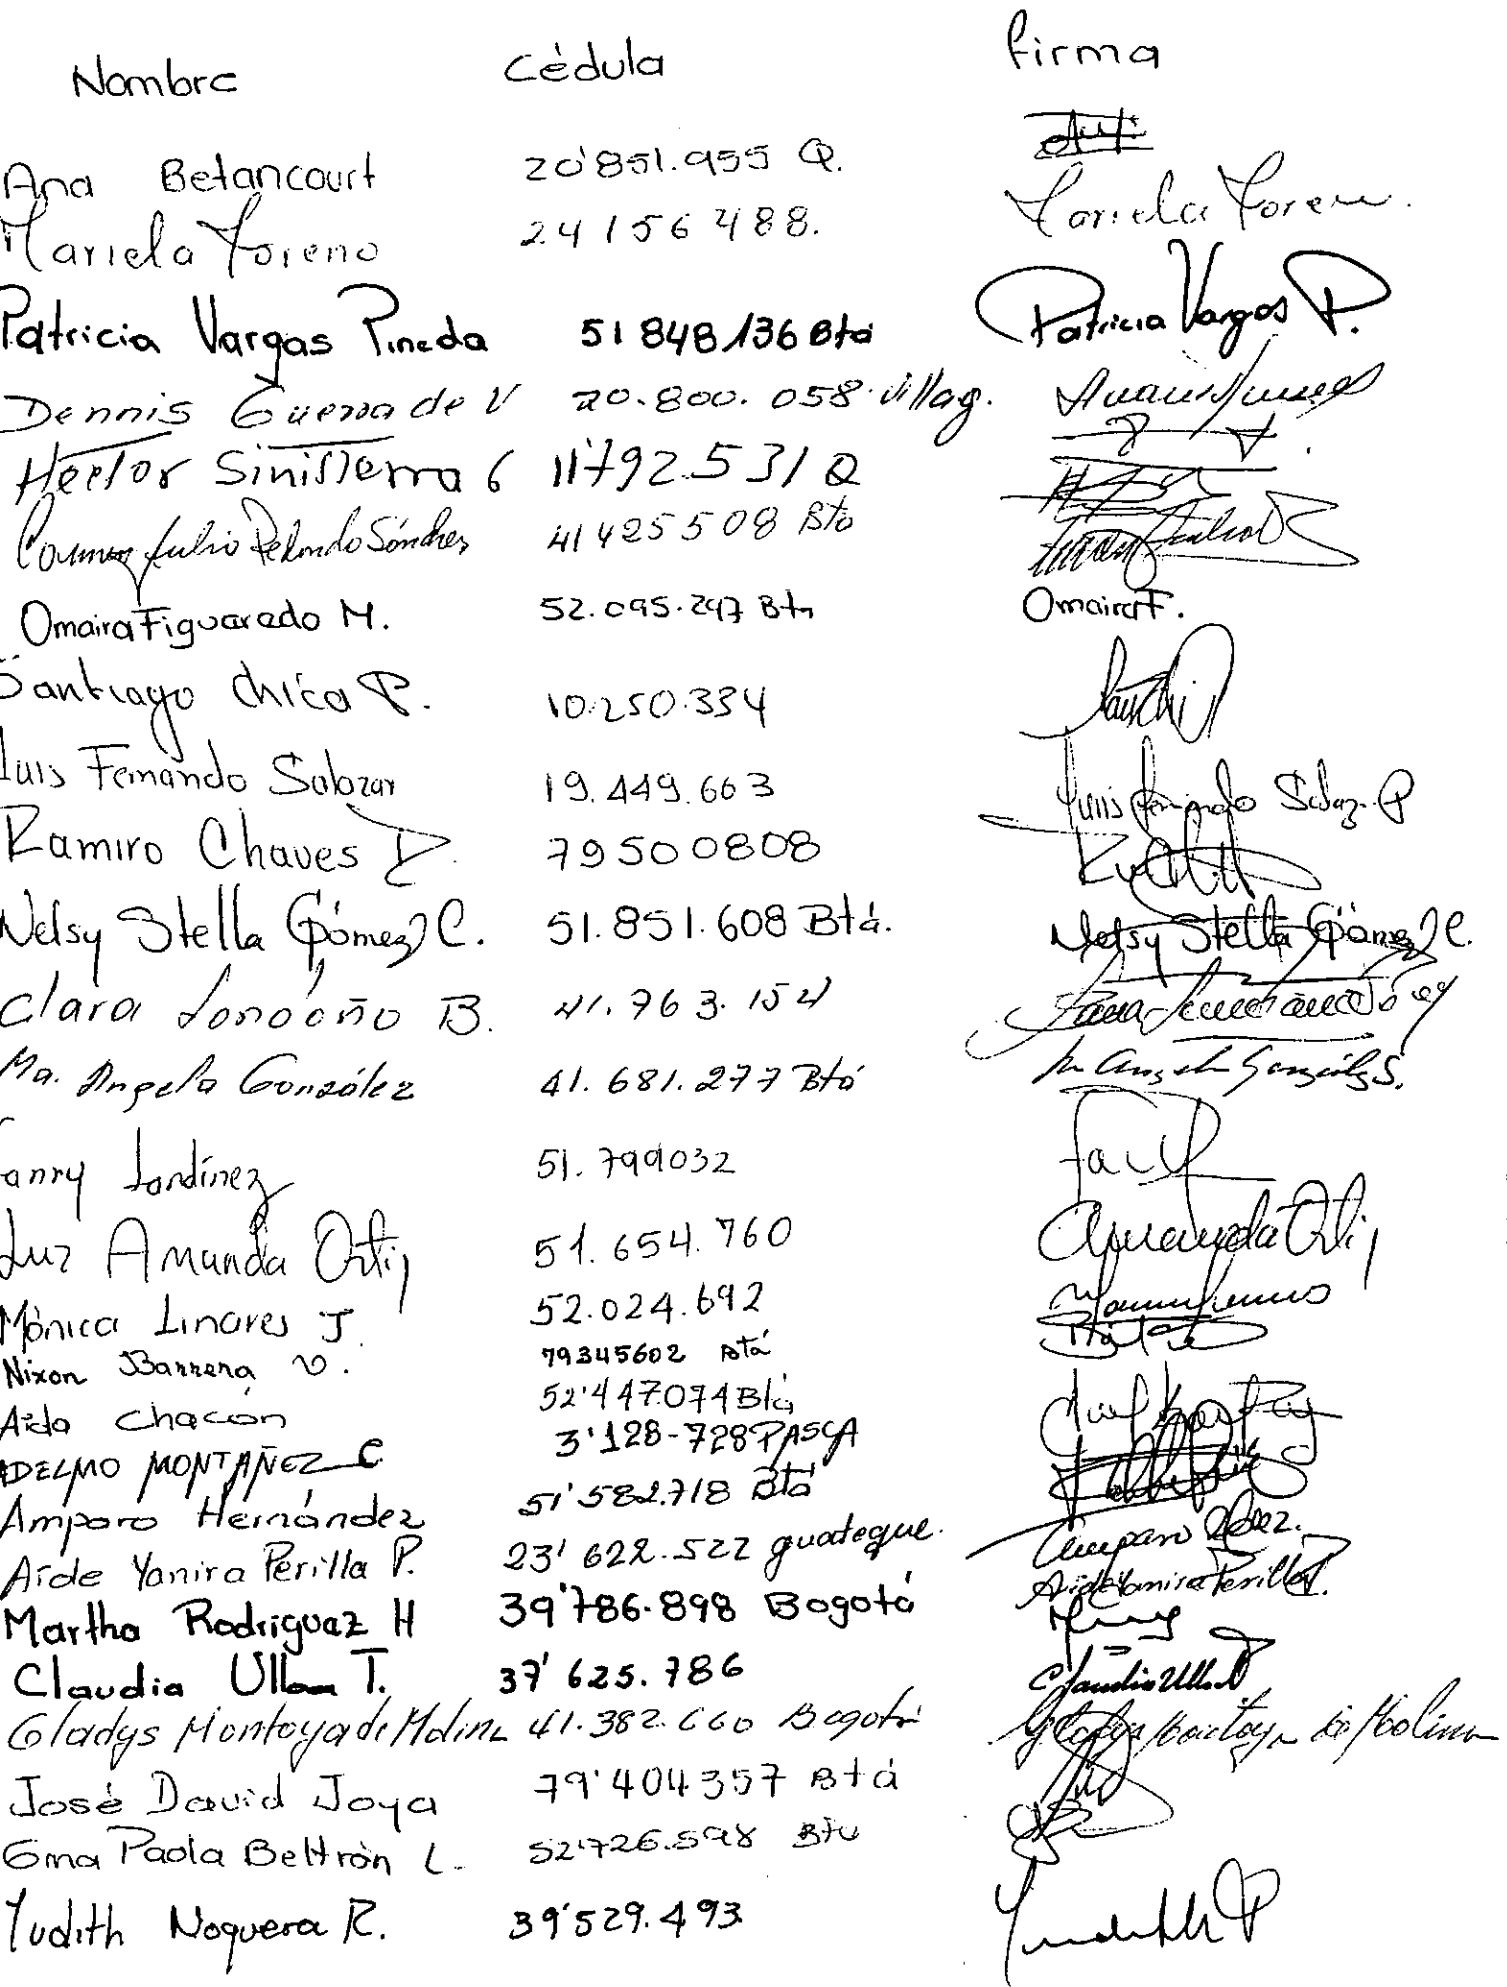 Nombre Cédula firma
Ana Betancourt 20'851.955 Q.
Mariela Moreno 24156488. Mariela Moreno.
Patricia Vargas Pineda 51848136 Btá Patricia Vargas P.
Dennis Guerra de V 20.800.058 Villag.
Hector Sinisterra G 11'792.531 Q
Julio Redondo Sánchez 41425508 Bta
Omaira Figuaredo M. 52.095.247 Bta Omaira F.
Santiago Chica P. 10.250.334
Luis Fernando Salazar 19.449.663 Luis Fernando Salaz. P
Ramiro Chaves 79500808
Nelsy Stella Gómez C. 51.851.608 Btá. Nelsy Stella Gómez C.
Clara Londoño B. 41.763.154
Ma. Angela González 41.681.277 Btá Ma Angela González S.
Fanny Landínez 51.799032
Luz Amanda Ortiz 51.654.760 Amanda Ortiz
Mónica Linares J. 52.024.692
Nixon Barrera V. 79345602 Btá
Aida Chacón 52'447.074 Btá
ADELMO MONTAÑEZ C 3'128-728 PASCA
Amparo Hernández 51'582.718 Btá
Aide Yanira Perilla P. 23'622.522 guateque. Aide Yanira Perilla P.
Martha Rodriguez H 39'786.898 Bogotá
Claudia Ulloa T. 37'625.786 Claudia Ulloa T
Gladys Montoya de Molina 41.382.660 Bogotá Gladys Montoya de Molina
José David Joya 79'404357 Btá
Gma Paola Beltrán L. 52'726.598 Bta
Yudith Noguera R. 39'529.493